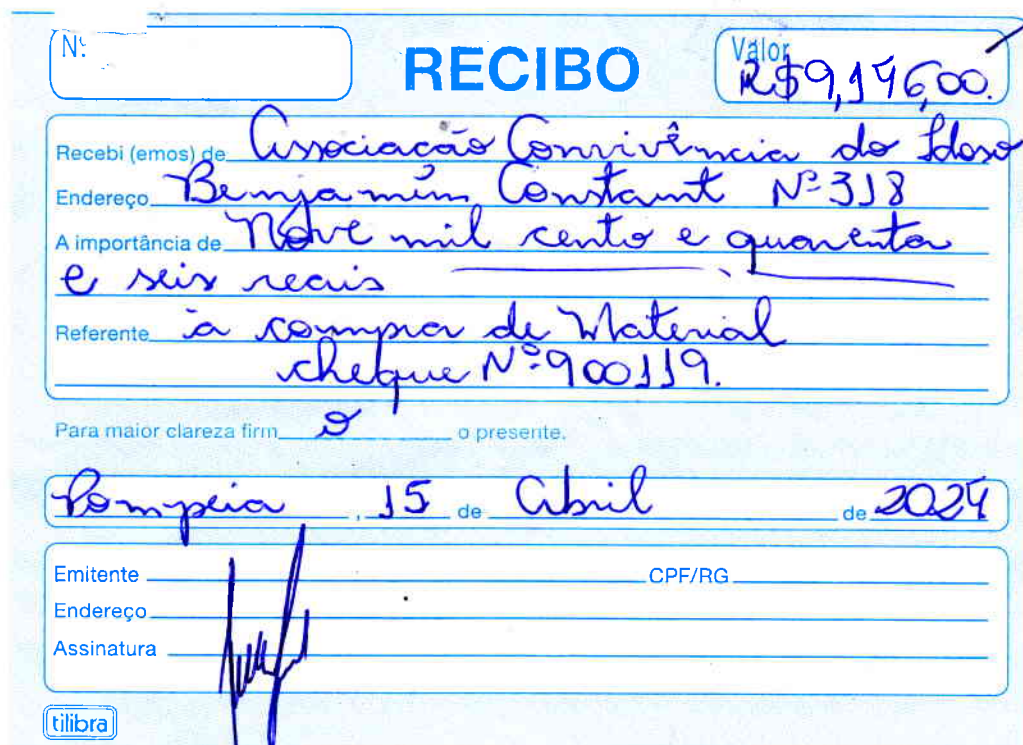 Nº
RECIBO
Valor
R$9,146,00.
Recebi (emos) de Associacão Convivência do Idoso
Endereço Benjamin Constant Nº 318
A importância de Nove mil cento e quarenta
e seis reais
Referente à compra de Material
cheque Nº 900119.
Para maior clareza firm o o presente.
Pompeia , 15 de Abril de 2024
Emitente CPF/RG
Endereço
Assinatura
tilibra